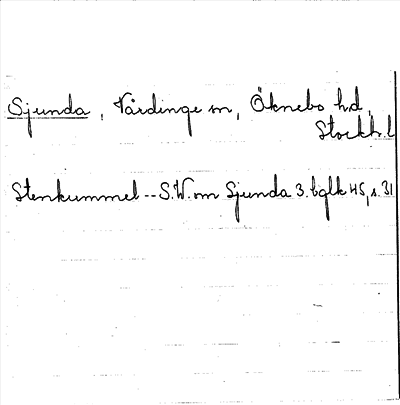 Sjunda, Vårdinge sn, Öknebo hd,
Stockh. l
Stenkummel -- S.W. om Sjunda 3. bglk 45, s. 31